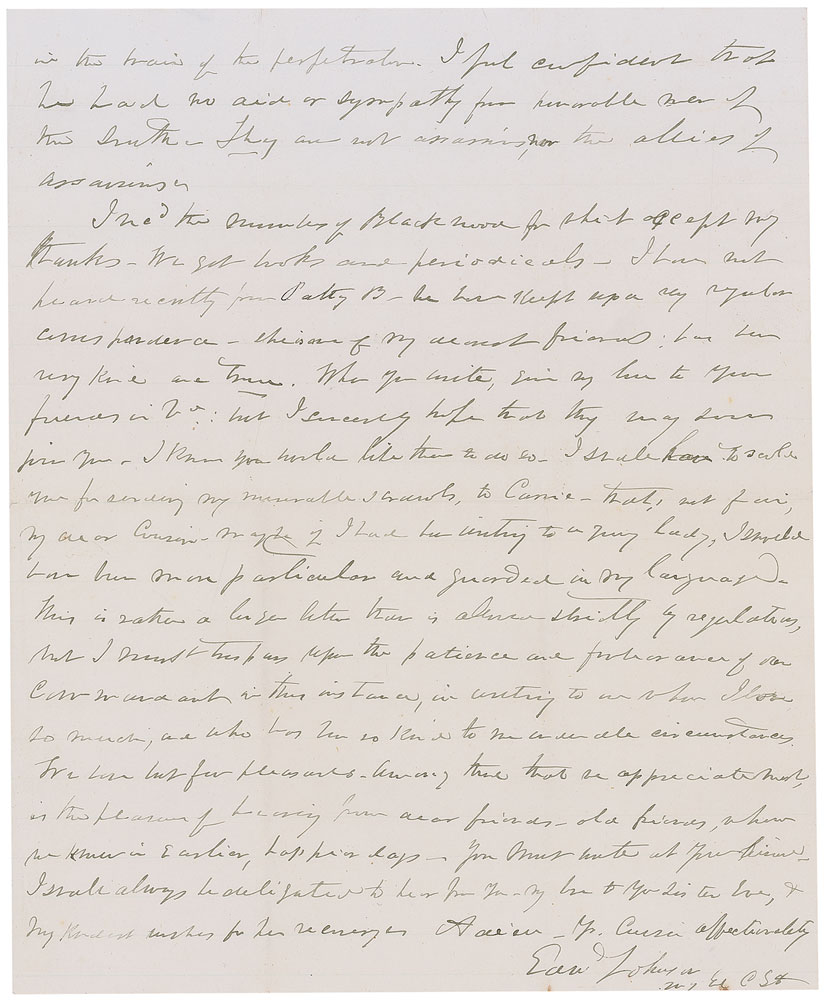 in the train of the perpetrator. I feel confident that
he had no aid or sympathy from honorable men of
the South – They are not assassins, nor the allies of
assassins –
I rec'd the number of Blackwood for which accept my
thanks – We get books and periodicals – I have not
heard recently from Patty B – have kept up a very regular
correspondence – she is one of my dearest friends; has been
very kind and true. When you write, give my love to your
friends in Va: but I sincerely hope that they may soon
join you – I know you would like them to do so – I shall have to scold
you for sending my miserable scrawls, to Carrie – that's not fair,
my dear Cousin – maybe if I had been writing to a young lady, I should
have been more particular and guarded in my language –
This is rather a longer letter than is allowed strictly by regulations,
but I must trespass upon the patience and forbearance of our
Commandant in this instance, in writing to one whom I love
so much, and who has been so kind to me under all circumstances.
We have but few pleasures – among those that we appreciate most,
is the pleasure of hearing from dear friends – old friends, whom
we knew in Earlier, happier days – You must write at your leisure –
I shall always be delighted to hear from you – my love to your Sister Eve, &
my kindest wishes for her recovery – Adieu – Yr. Cousin affectionately
Edwd Johnson